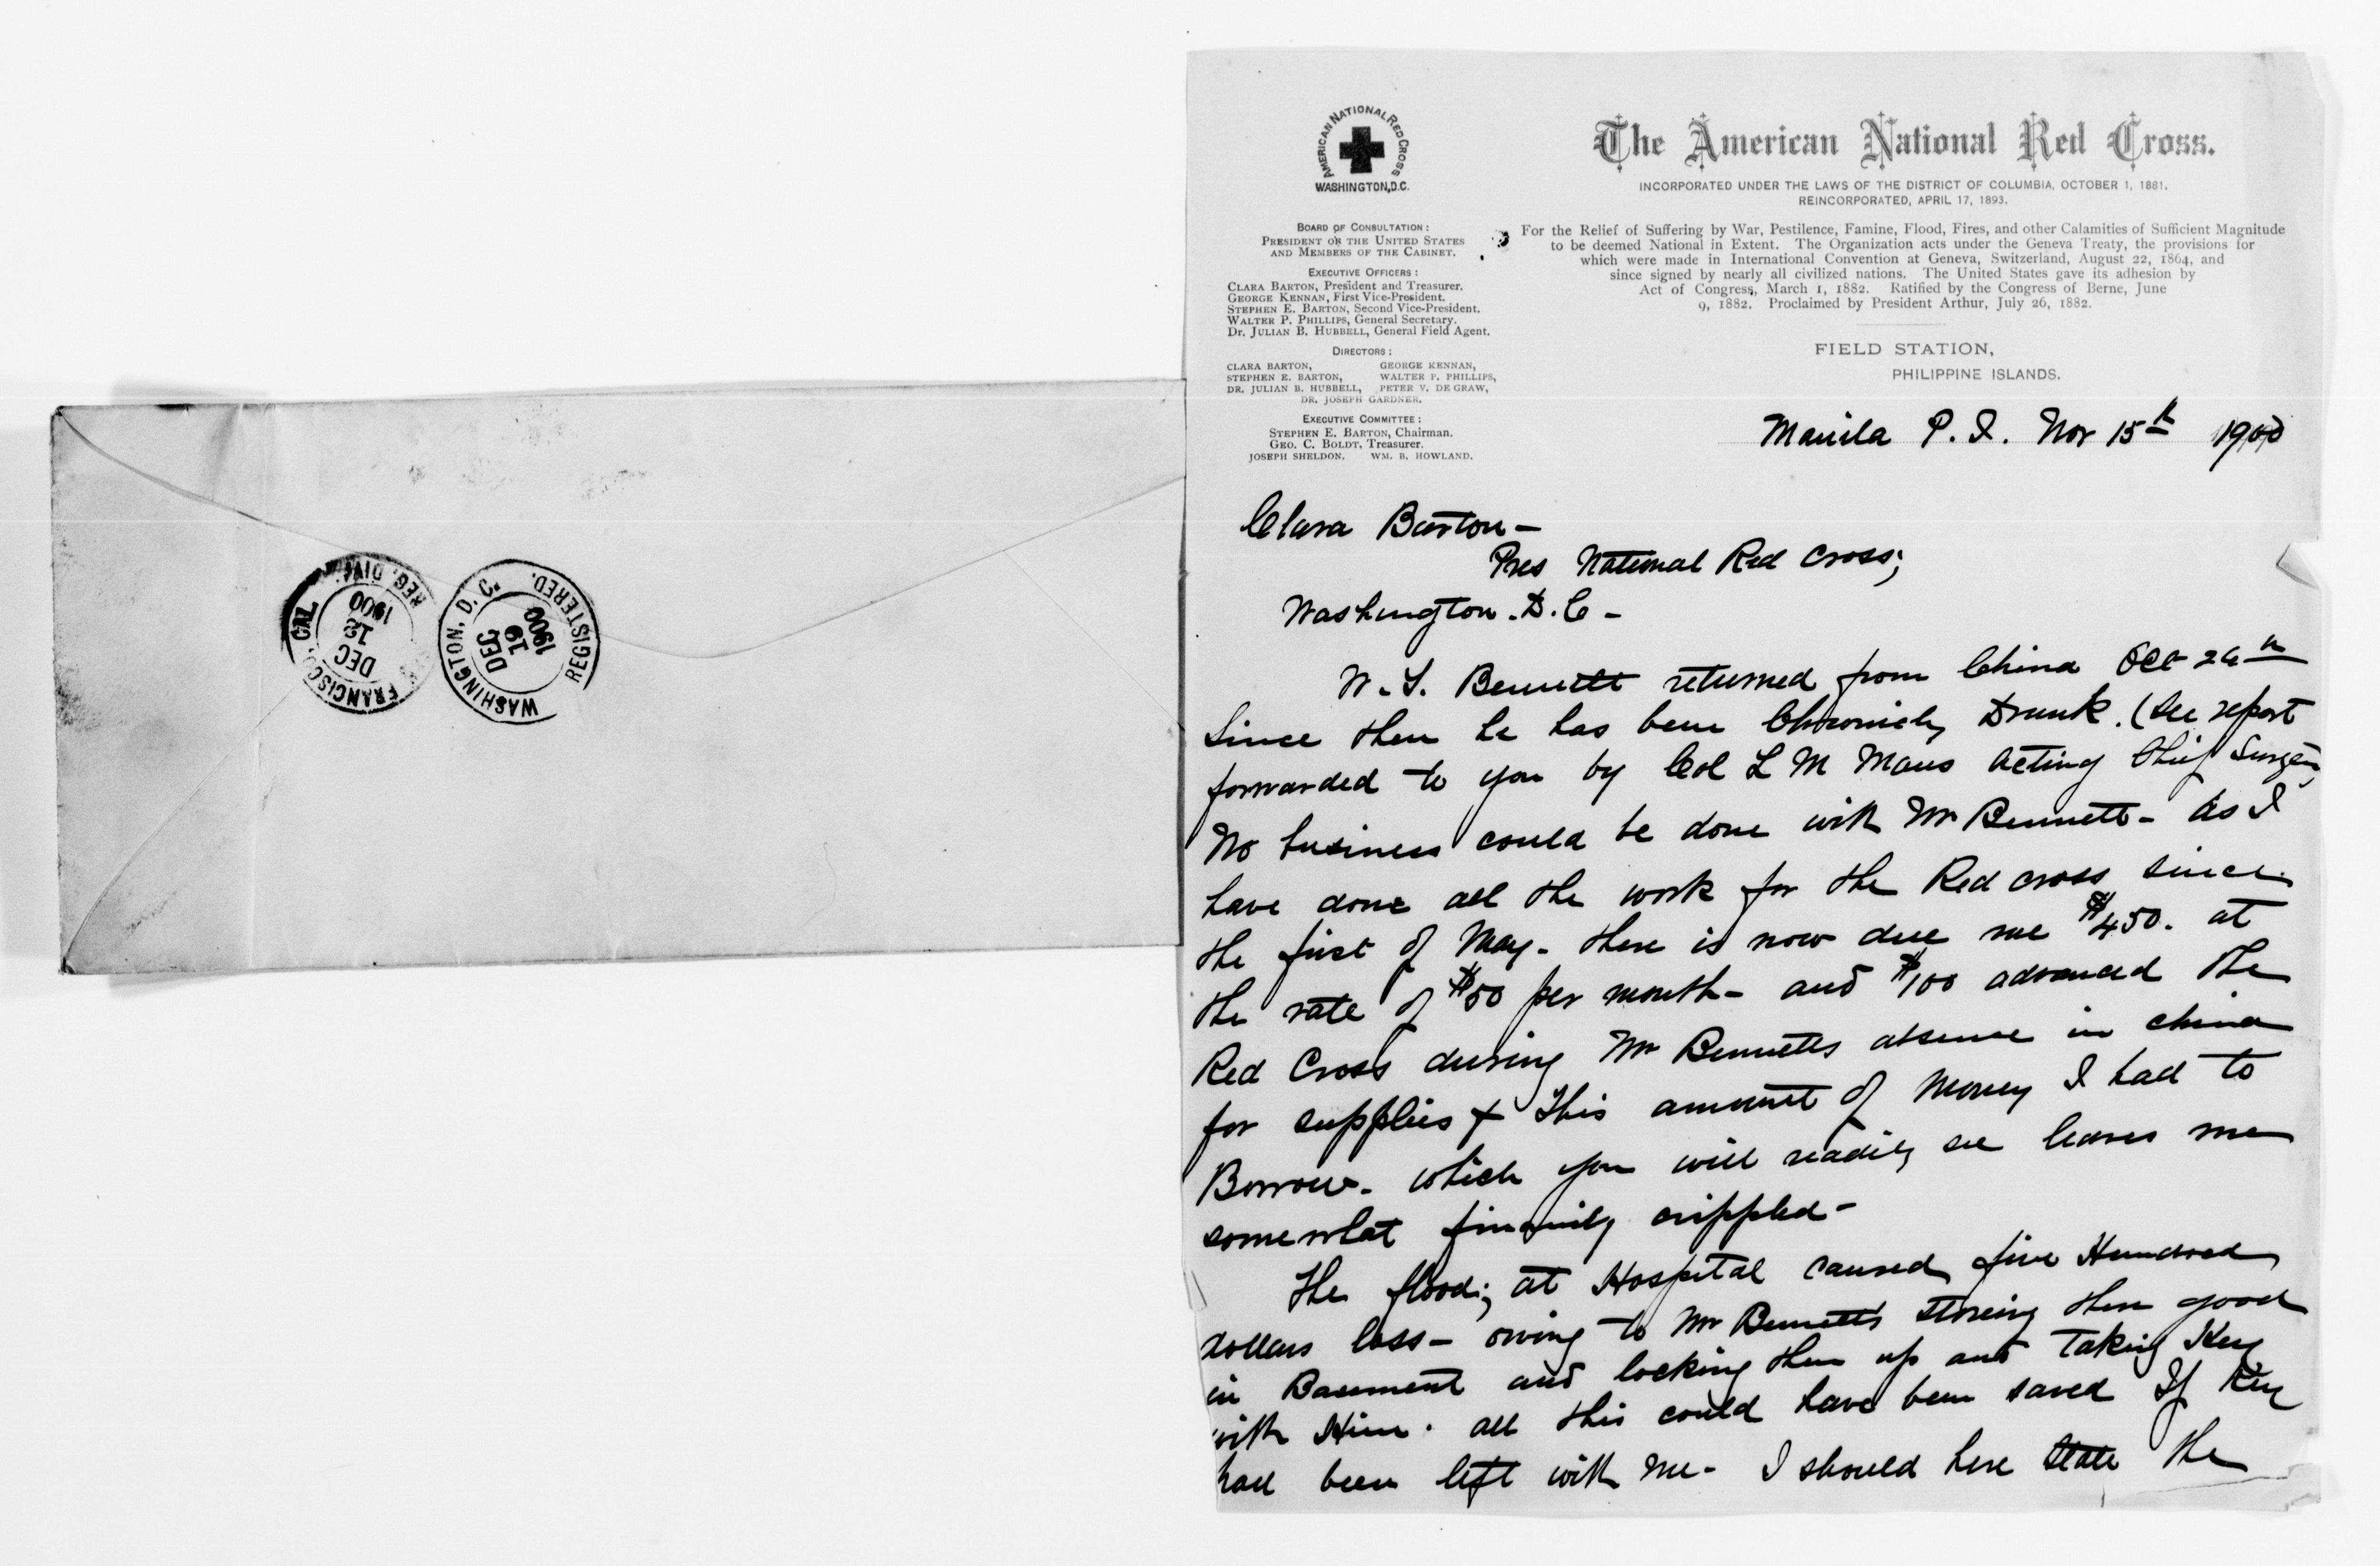 FRANCISCO, CAL
REG. DIV.
DEC
12
1900
WASHINGTON, D. C.
REGISTERED.
DEC
19
1900
AMERICAN NATIONAL RED CROSS
WASHINGTON, D.C.
BOARD OF CONSULTATION:
PRESIDENT OF THE UNITED STATES
AND MEMBERS OF THE CABINET.
EXECUTIVE OFFICERS:
CLARA BARTON, President and Treasurer.
GEORGE KENNAN, First Vice-President.
STEPHEN E. BARTON, Second Vice-President.
WALTER P. PHILLIPS, General Secretary.
DR. JULIAN B. HUBBELL, General Field Agent.
DIRECTORS:
CLARA BARTON, GEORGE KENNAN,
STEPHEN E. BARTON, WALTER P. PHILLIPS,
DR. JULIAN B. HUBBELL, PETER V. DE GRAW,
DR. JOSEPH GARDNER.
EXECUTIVE COMMITTEE:
STEPHEN E. BARTON, Chairman.
GEO. C. BOLDT, Treasurer.
JOSEPH SHELDON. WM. B. HOWLAND.
The American National Red Cross.
INCORPORATED UNDER THE LAWS OF THE DISTRICT OF COLUMBIA, OCTOBER 1, 1881.
REINCORPORATED, APRIL 17, 1893.
For the Relief of Suffering by War, Pestilence, Famine, Flood, Fires, and other Calamities of Sufficient Magnitude
to be deemed National in Extent. The Organization acts under the Geneva Treaty, the provisions for
which were made in International Convention at Geneva, Switzerland, August 22, 1864, and
since signed by nearly all civilized nations. The United States gave its adhesion by
Act of Congress, March 1, 1882. Ratified by the Congress of Berne, June
9, 1882. Proclaimed by President Arthur, July 26, 1882.
FIELD STATION,
PHILIPPINE ISLANDS.
Manila P. I. Nov 15th 1900
Clara Barton-
Pres National Red Cross;
Washington. D. C -
W. S. Bennett returned from China Oct
Since then he has been Chronicly Drunk. (See report
forwarded to you by Col L M Maus Acting Chief Surgeon
No business could be done with Mr Bennett- As I
have done all the work for the Red cross since
the first of May- there is now due me $450. at
the rate of $50 per month- and $100 advanced the
Red Cross during Mr Bennetts absence in china
for supplies & This amount of Money I had to
Borrow. which you will readily see leaves me
somewhat finanily crippled-
The flood; at Hospital caused five Hundred
dollars loss- owing to Mr Bennetts storeing these good
in Basement and locking them up and Taking Key
with Him. all this could have been saved If Key
had been left with me- I should here state the